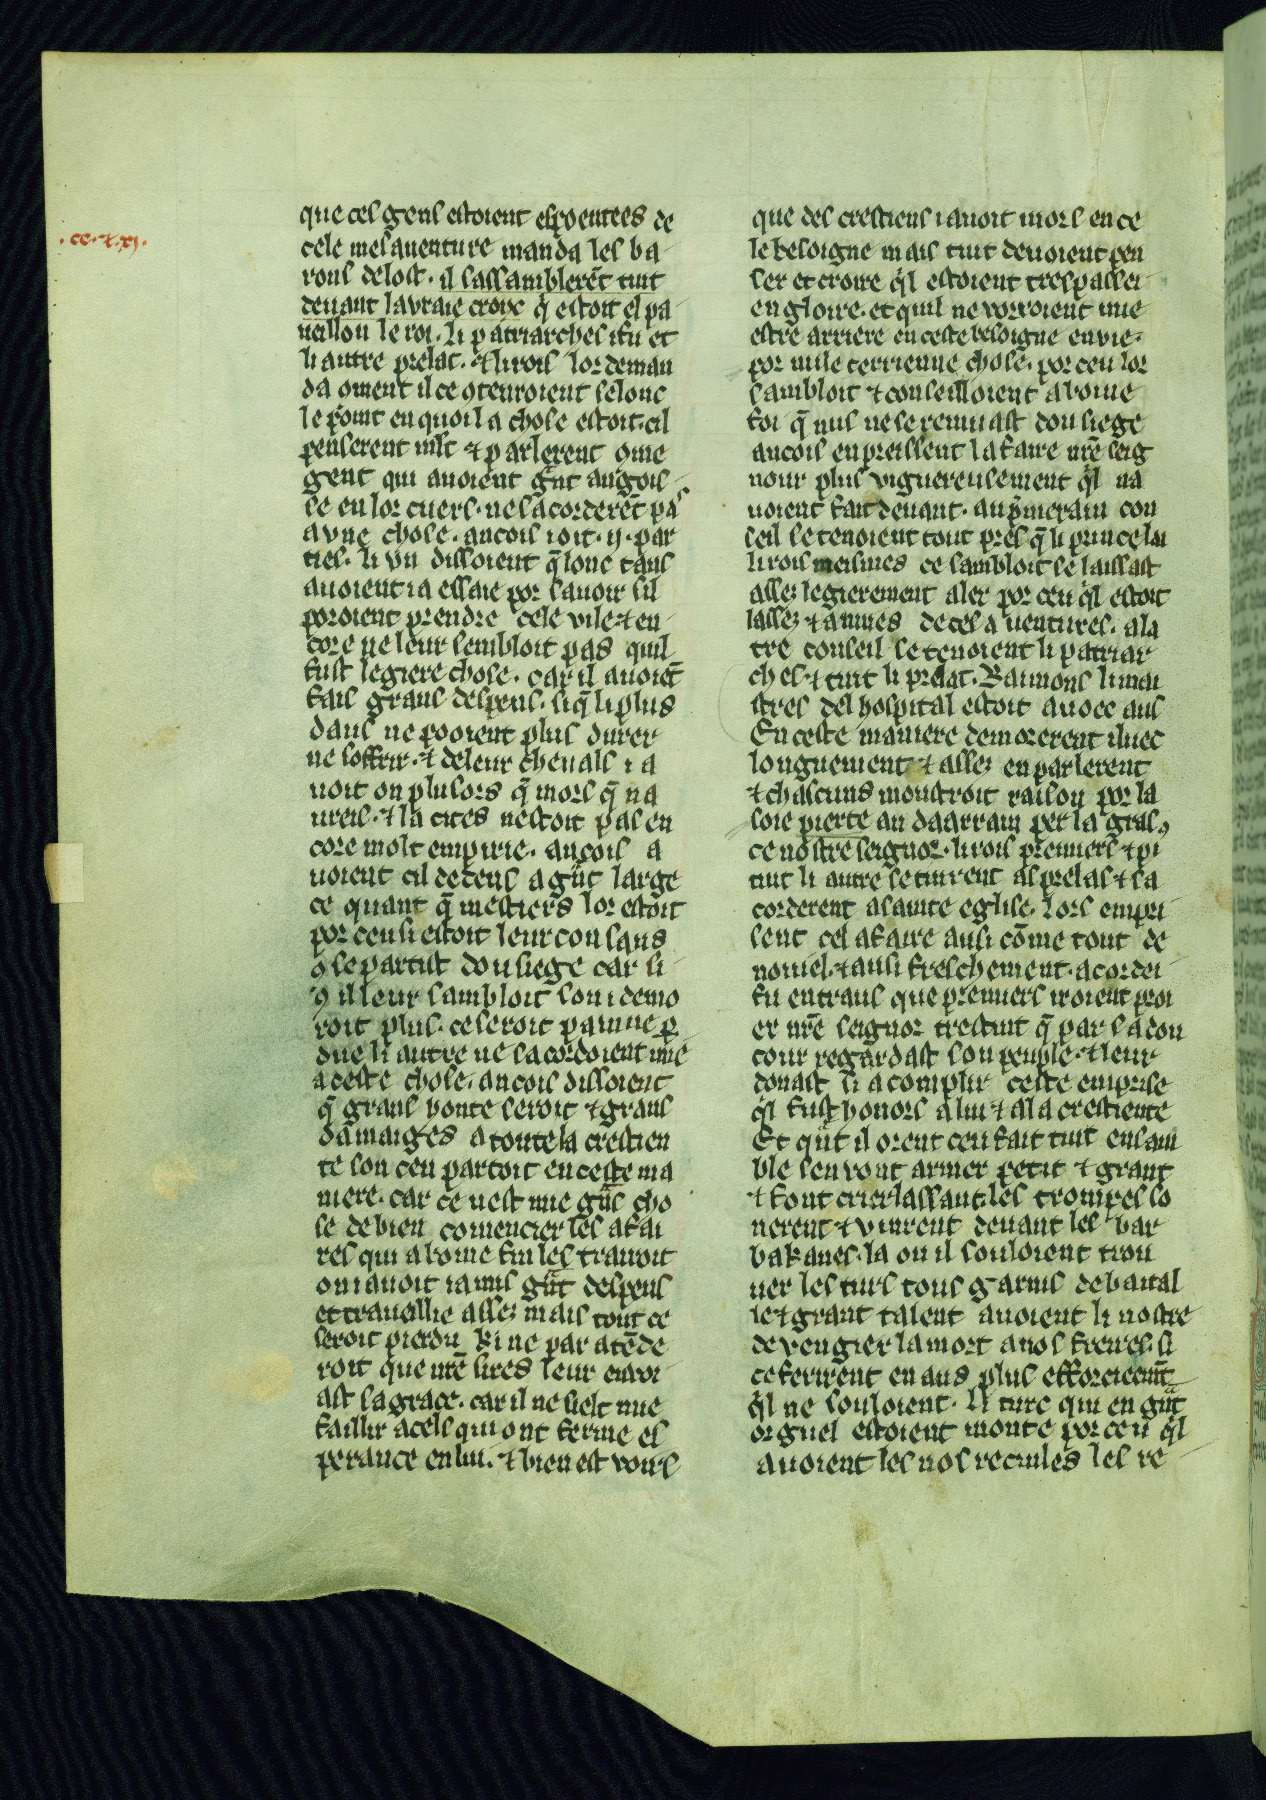 .cc.⁊.xi.
que ces gens estoient espoentees de
cele mesauenture manda les ba
rons delost. il sassamblerēt tuit
deuant la vraie croix q̄ estoit el pa
ueillon le roi. li patriarches ifu et
li autre prelat. ⁊ li rois lor deman
da oment il ce ꝯtenroient selonc
le point en quoi la chose estoit. cil
penserent mlt ⁊ parlerent ꝯme
gent qui auoient gͣnt angois
se en lor cuers. ne sacorderēt pas
a vne chose. ancois iot .ij. par
ties. li vn dissoient q̄ lonc tans
auoient ia essaie por sauoir sil
poroient prendre cele vile ⁊ en
core ne leur sembloit pas quil
fust legiere chose. car il auoiēt
fais grans despens. si q̄ li plus
dans ne pooient plus durer
ne soffrir. ⁊ de leur cheuals i a
uoit on plusors q̄ mors q̄ na
ureis. ⁊ la cites nestoit pas en
core molt empirie. ancois a
uoient cil de dens a gͣnt large
ce quant q̄ mestiers lor estoit
por ceu si estoit leur consaus
ꝯ se partist dou siege car si
ꝯ il leur sambloit son i demo
roit plus. ce seroit painne ꝑ
due li autre ne sacordoient mie
a ceste chose. ancois dissoient
q̄ grans honte seroit ⁊ grans
damaiges a toute la crestien
te son ceu partoit en ceste ma
niere. car ce nest mie gͣns cho
se de bien comencier les afai
res qui a bonne fin les trauoit
on i auoit ia mis gͣnt despens
et trauellie asses mais tout ce
seroit pierdu ki ne par atēde
roit que nr̄e sires leur enuoi
ast sa grace. car il ne sielt mie
faillir a cels qui ont ferme es
perance en lui. ⁊ bien est voirs
que des crestiens i auoit mors en ce
le besoigne mais tuit deuoient pen
ser et croire qͥl estoient trespassei
en gloire. et quil ne vorroient mie
estre arriere en ceste besoigne en vie.
por nule terrienne chose. por ceu lor
sambloit ⁊ conseilloient a bonne
foi q̄ nus ne se remuast dou siege
ancois enpreissent lafaire nr̄e seig
nour plus viguereusement qͥl na
uoient fait deuant. au pͥmerain con
seil se tenoient tout pres q̄ li prince lai
li rois meismes ce sambloit se laissast
asses legierement aler por ceu qͥl estoit
lasses ⁊ annues de ces auentures. a la
tre conseil se tenoient li patriar
ches ⁊ tuit li prelat. Raimons li mai
stres del hospital estoit auoec aus
En ceste maniere demorerent iluec
longuement ⁊ asses en parlerent
⁊ chascuns monstroit raison por la
soie pierte au daarrain per la gras
ce nostre seignor. li rois premiers ⁊ pi
tuit li autre se tinrent as prelas ⁊ sa
corderent a sainte eglise. lors empri
sent cel afaire ausi cōme tout de
nouiel. ⁊ ausi freschement. acordei
fu entraus que premiers iroient proi
er nr̄e seignor trestuit q̄ par sa dou
cour regardast son peuple. ⁊ leur
donast si acomplir ceste emprise
qͥl fust honors a lui ⁊ a la crestiente
Et qͣnt il orent ceu fait tuit ensam
ble sen vont armer petit ⁊ grant
⁊ font crier lassaut. les trompes so
nerent ⁊ vinrent deuant les bar
bakanes. la ou il souloient trou
uer les turs tous garnis de batail
le ⁊ grant talent auoient li nostre
de vengier la mort a nos freires. si
ce ferirent en aus plus efforcieemt̄
qͥl ne souloient. li turc qui en gͣnt
orguel estoient monte por ceu qͥl
auoient les nos recules les re